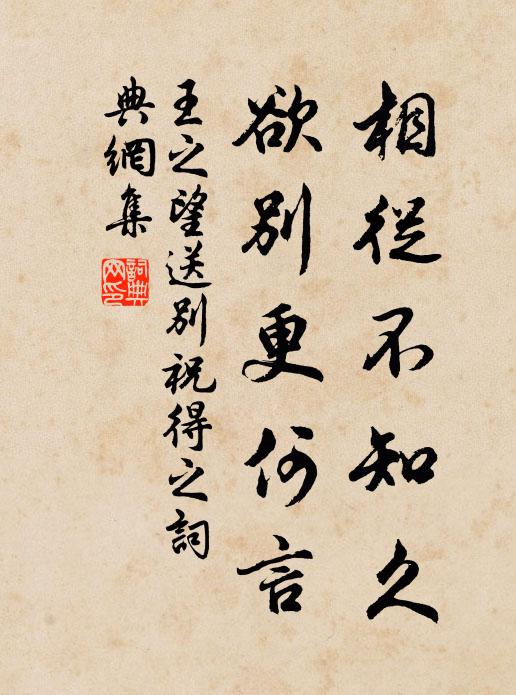 相從不知久
欲別更何言
王之望送別祝得之詞
典網集
詞典
网印